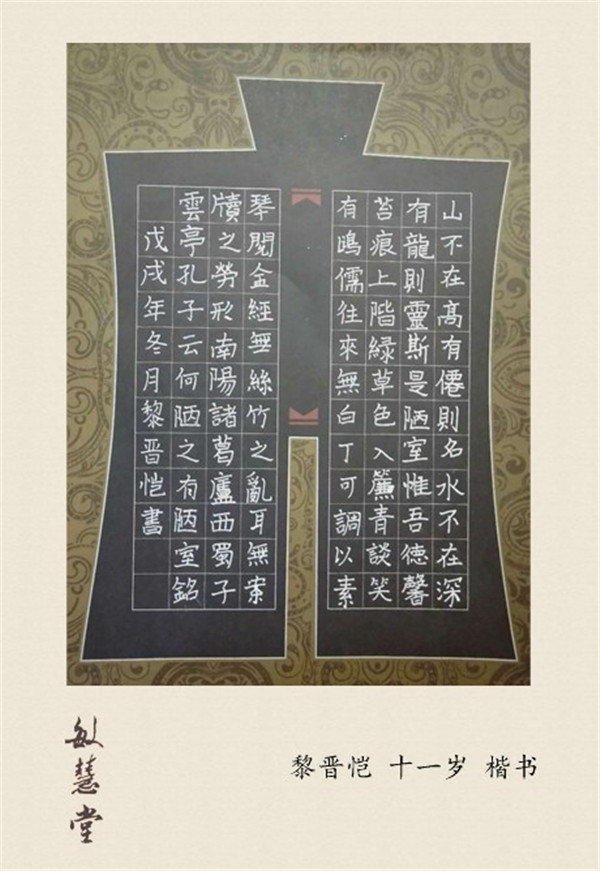 山不在髙有僊則名水不在深
有龍則靈斯是陋室惟吾徳馨
苔痕上階緑草色入簾青談笑
有鴻儒往來無白丁可調以素
琴閱金經無絲竹之亂耳無案
牘之勞形南陽諸葛廬西蜀子
雲亭孔子云何陋之有陋室銘
戊戌年冬月黎晋恺書
敏慧堂
黎晋恺 十一岁 楷书